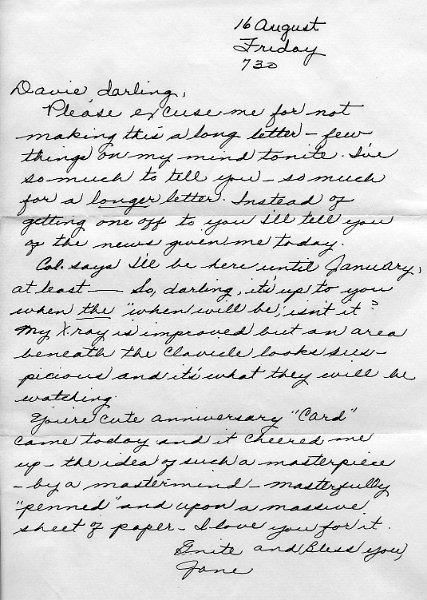 16 August
Friday
730
Davie darling,
Please excuse me for not
making this a long letter – few
things on my mind tonite. I've
so much to tell you – so much
for a longer letter. Instead of
getting one off to you I'll tell you
of the news given me today.
Col. says I'll be here until January,
at least — So, darling, it's up to you
when the "when will be", isn't it?
My X-ray is improved but an area
beneath the Clavicle looks sus-
picious and it's what they will be
watching.
You're cute anniversary "Card"
came today and it cheered me
up – the idea of such a masterpiece
– by a mastermind – masterfully
"penned" and upon a massive
sheet of paper – I love you for it.
Gnite and Bless you,
Jane